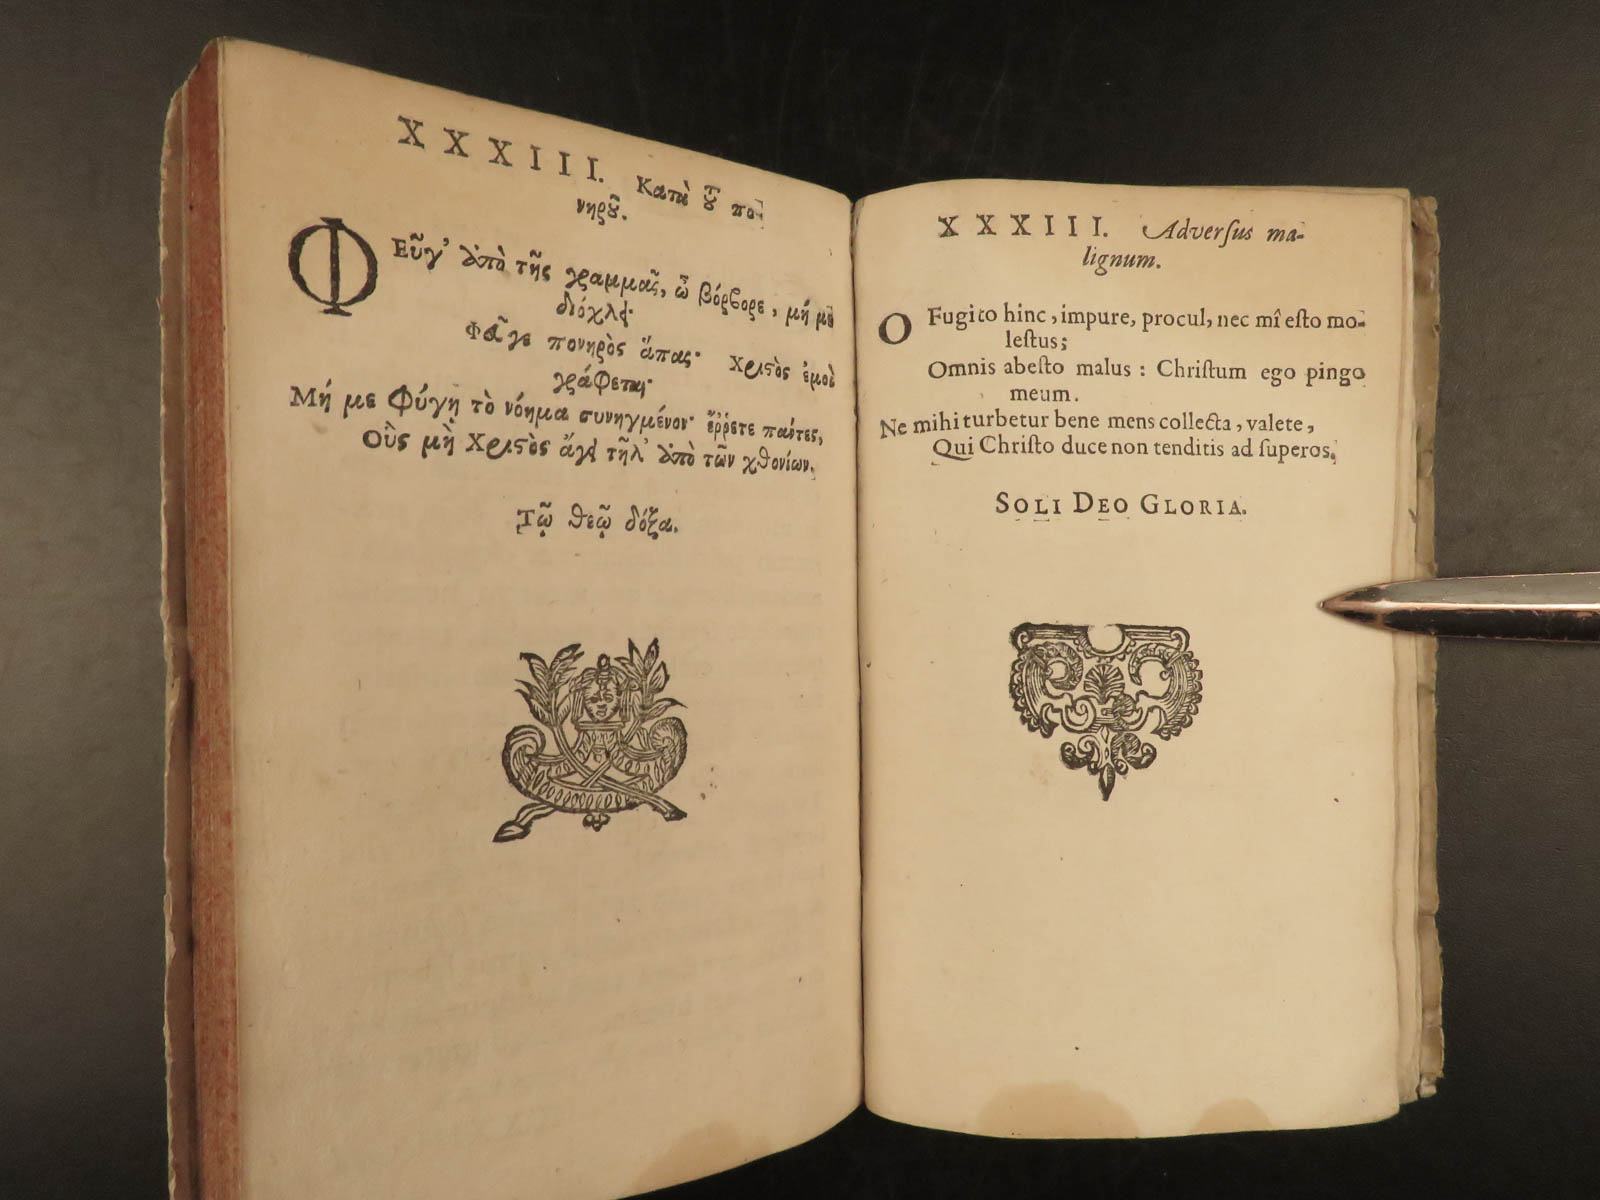 XXXIII. Κατὰ τοῦ πο-
νηροῦ.
ΦΕῦγ' ἀπὸ τῆς γραμμᾶς, ὦ βόρβορε, μή με
διόχλει·
Φεῦγε πονηρὸς ἅπας· Χριστὸς ἐμοὶ
γράφεται·
Μή με φύγῃ τὸ νόημα συνηγμένον· ἔῤῥετε πάντες,
Οὓς μὴ Χριστὸς ἄγει τῆλ' ἀπὸ τῶν χθονίων.
Τῷ θεῷ δόξα.
XXXIII. Adverſus ma-
lignum.
O Fugito hinc, impure, procul, nec mî eſto mo-
leſtus;
Omnis abeſto malus : Chriſtum ego pingo
meum.
Ne mihi turbetur bene mens collecta, valete,
Qui Chriſto duce non tenditis ad ſuperos.
SOLI DEO GLORIA.